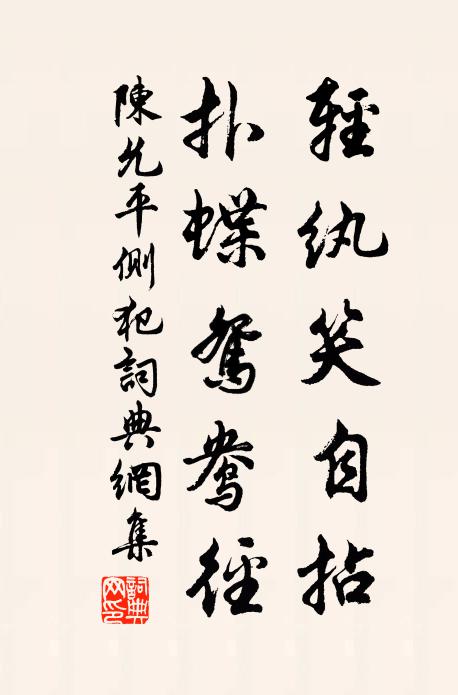 輕紈笑自拈
扑蝶鴛鴦徑
陳允平側犯詞典網集
詞典網印